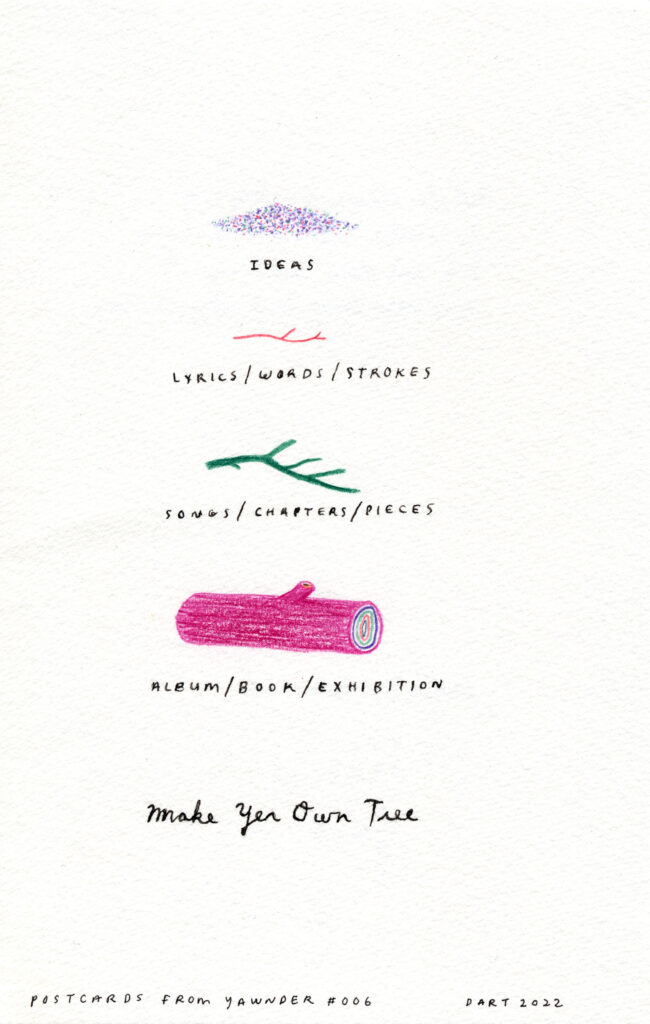 IDEAS
LYRICS/WORDS/STROKES
SONGS/CHAPTERS/PIECES
ALBUM/BOOK/EXHIBITION
Make Yer Own Tree
POSTCARDS FROM YAWNDER #006 DART 2022